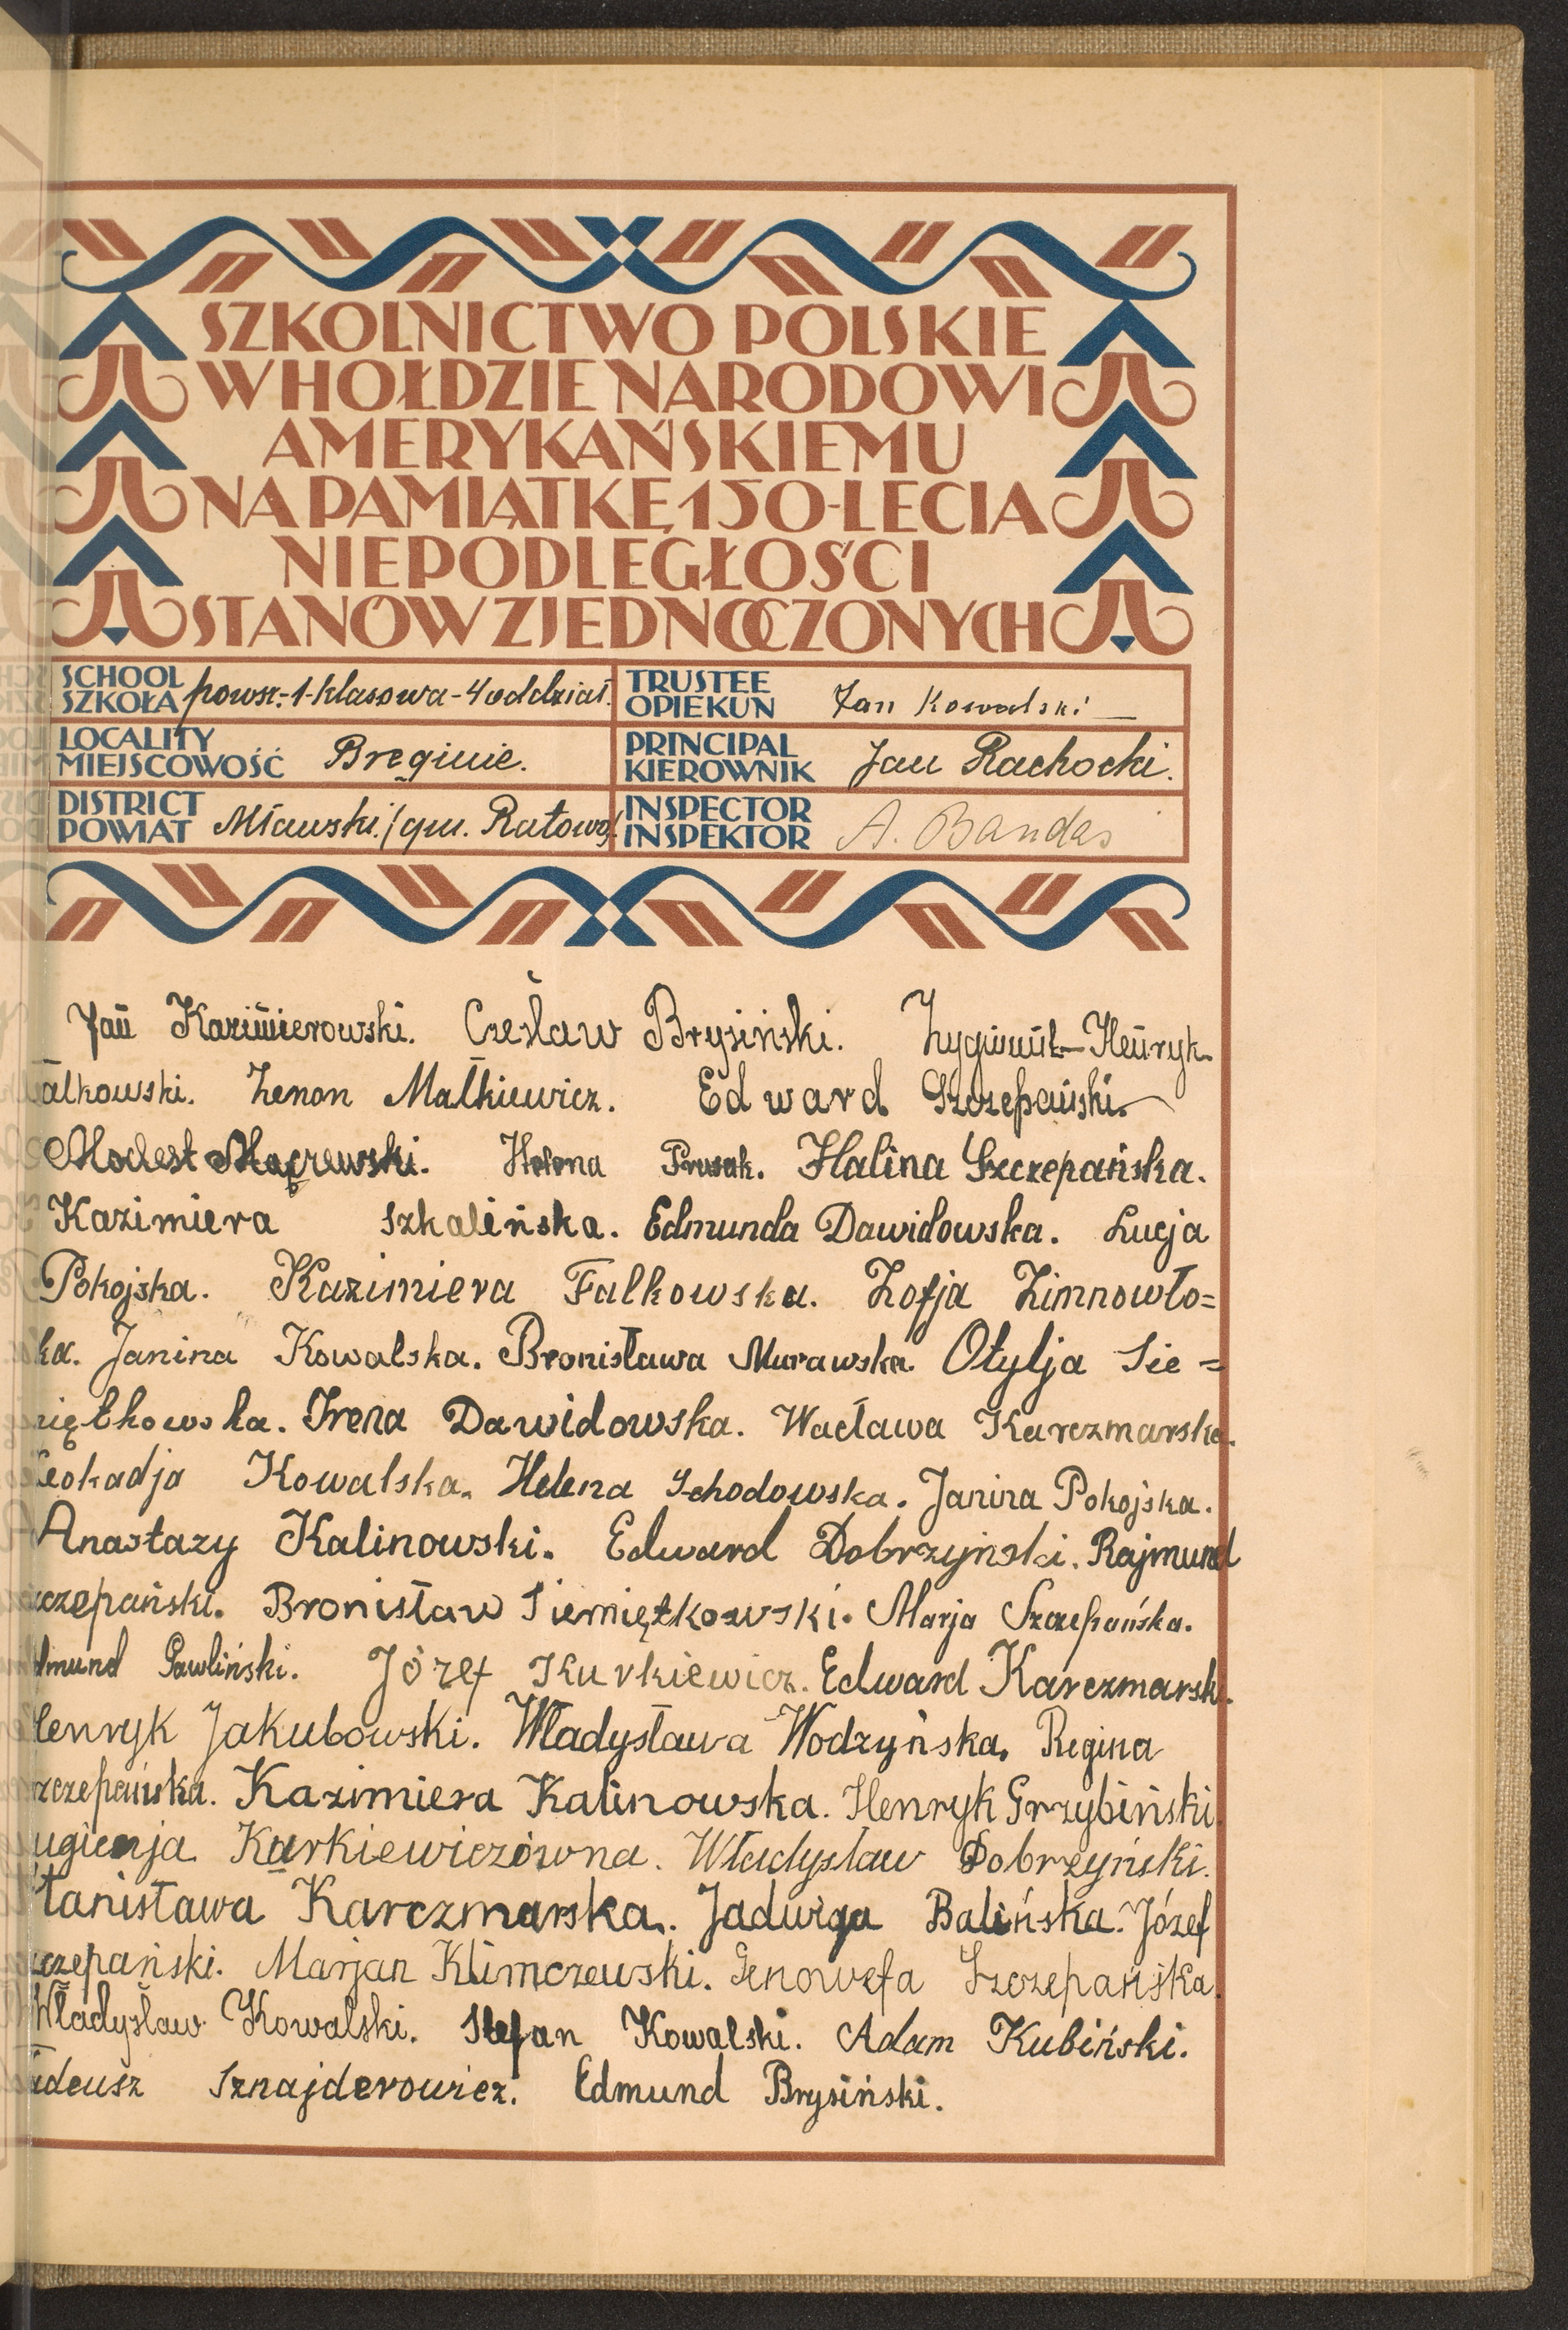 SZKOLNICTWO POLSKIE
W HOŁDZIE NARODOWI
AMERYKAŃSKIEMU
NA PAMIĄTKĘ 150-LECIA
NIEPODLEGŁOŚCI
STANÓW ZJEDNOCZONYCH
SCHOOL SZKOŁA powsz.-1-klasowa-4 oddział.
TRUSTEE OPIEKUN Jan Kowalski
LOCALITY MIEJSCOWOŚĆ Bręginie.
PRINCIPAL KIEROWNIK Jan Rachocki.
DISTRICT POWIAT Mławski./gm. Ratowo/.
INSPECTOR INSPEKTOR A. Bandas
Jan Kazimierowski. Czesław Brysiński. Zygmunt-Henryk
alkowski. Zenon Małkiewicz. Edward Szczepański.
Modest Helena Prusak. Halina Szczepańska.
Kazimiera Szkalińska. Edmunda Dawidowska. Łucja
Pokojska. Kazimiera Falkowska. Zofja Zimnowło=
ska. Janina Kowalska. Bronisława Murawska. Otylja Sie=
miętkowska. Irena Dawidowska. Wacława Karczmarska.
Leokadja Kowalska. Helena Schodowska. Janina Pokojska.
Anastazy Kalinowski. Edward Dobrzyński. Rajmund
zczepański. Bronisław Siemiętkowski. Marja Szczepańska.
dmund Gawliński. Józef Kurkiewicz. Edward Karczmarski.
Henryk Jakubowski. Władysława Wodzyńska. Regina
zczepańska. Kazimiera Kalinowska. Henryk Grzybiński.
ugienja Kurkiewiczówna. Władysław Dobrzyński.
Stanisława Karczmarska. Jadwiga Balińska. Józef
zczepański. Marjan Klimczewski. Genowefa Szczepańska.
Władysław Kowalski. Stefan Kowalski. Adam Kubiński.
adeusz Sznajderowicz. Edmund Brysiński.